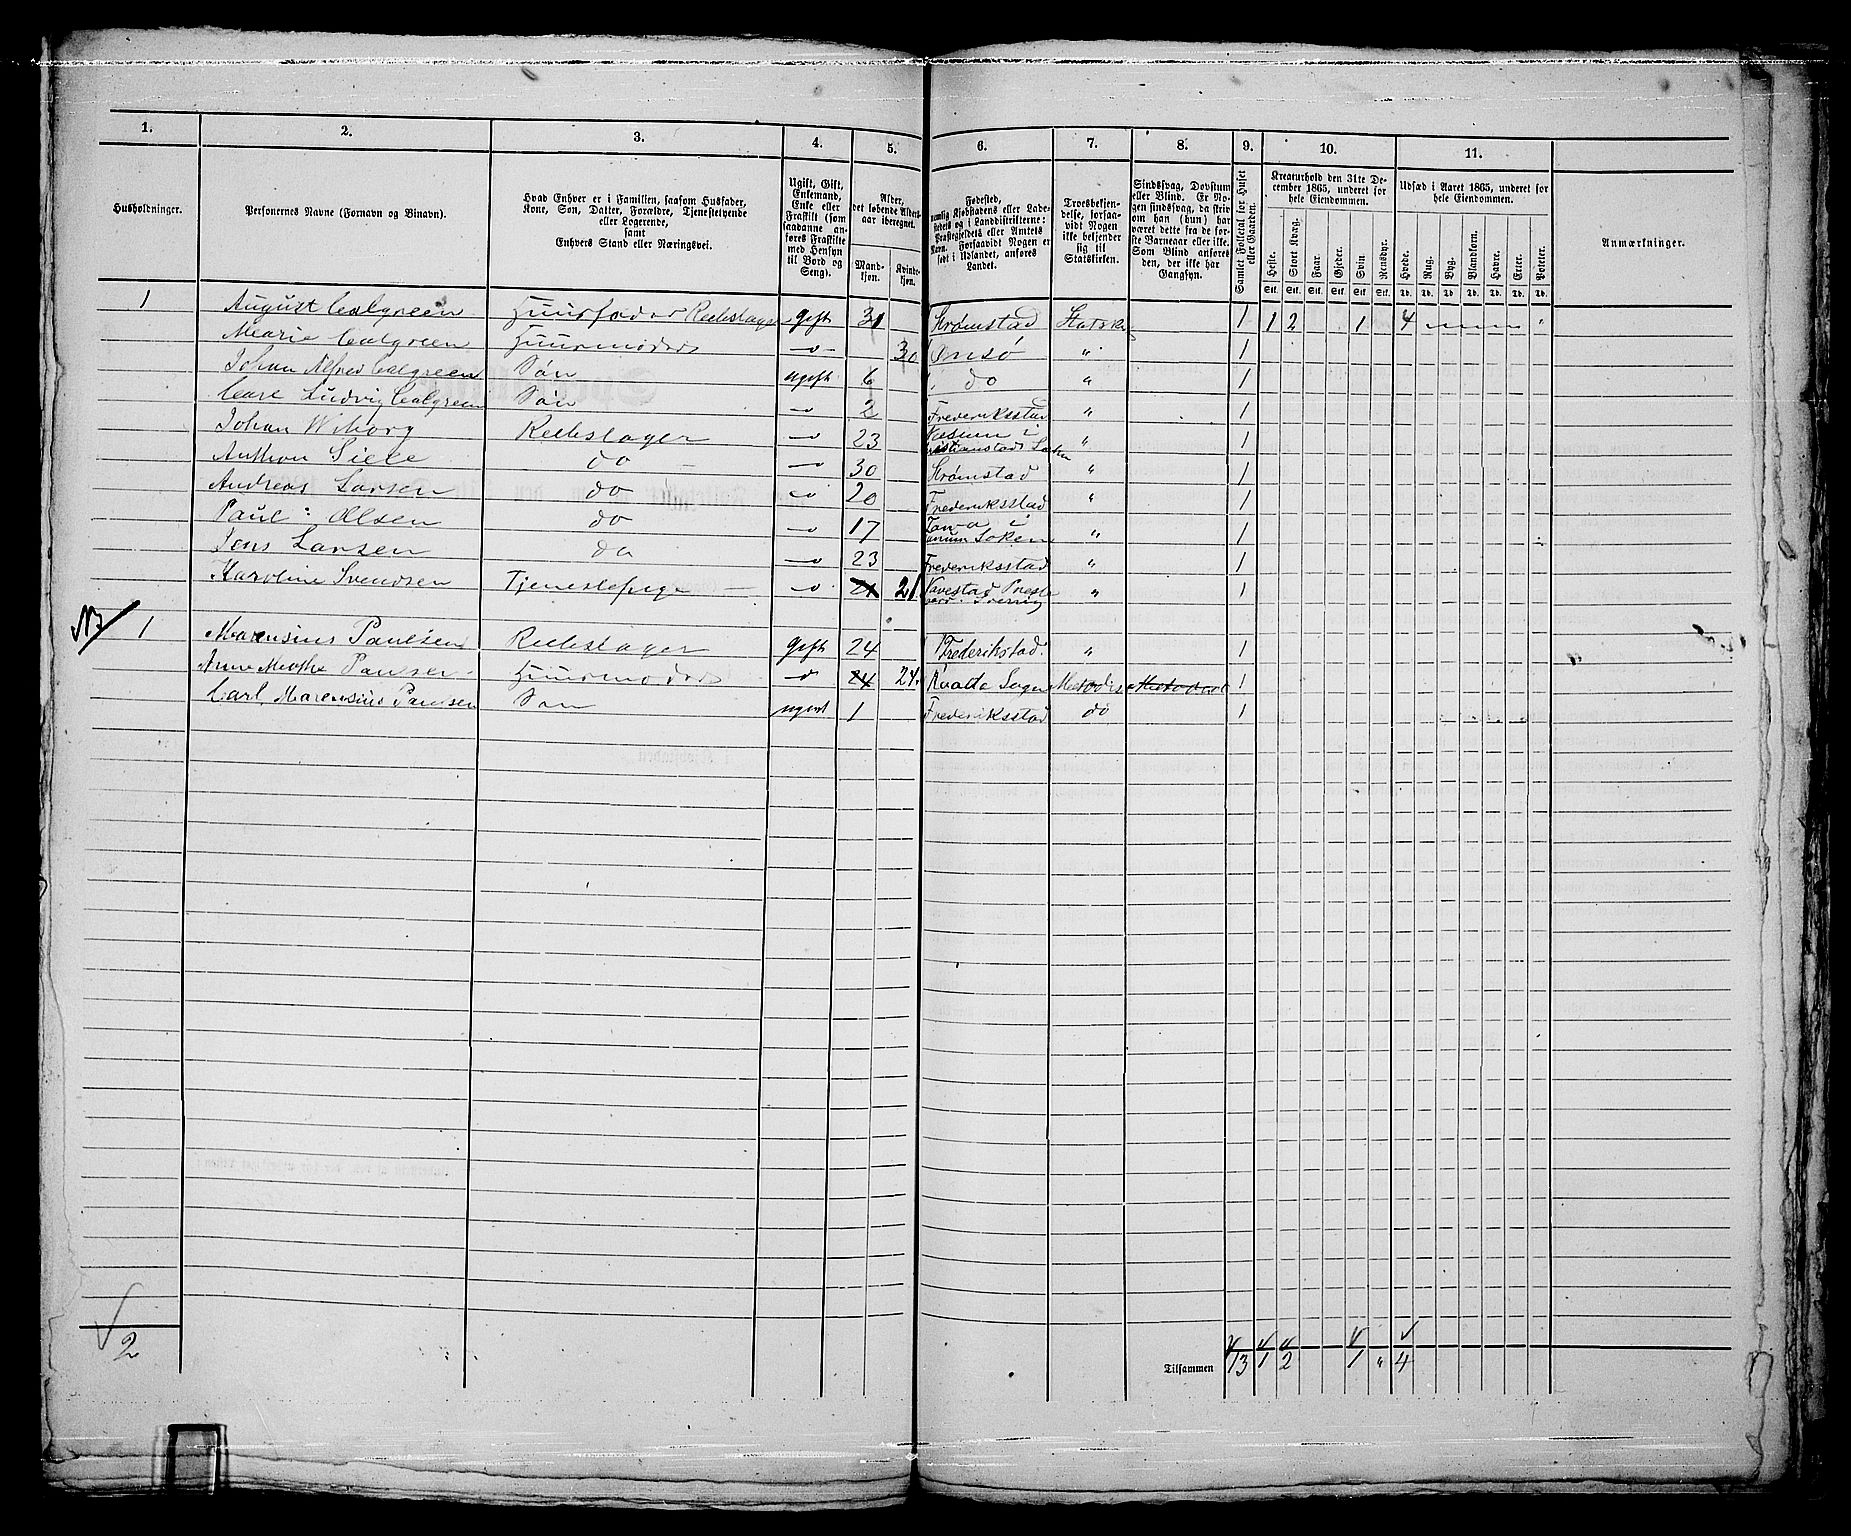 1. 2. 3. 4. 5. 6. 7. 8. 9. 10. 11.
Husholdninger.
Personernes Navne (Fornavn og Binavn).
Hvad Enhver er i Familien, saasom Husfader,
Kone, Søn, Datter, Forældre, Tjenestetyende
eller Logerende,
samt
Enhvers Stand eller Næringsvei.
Ugift, Gift,
Enkemand,
Enke eller
Fraskilt (som
saadanne an-
føres Fraskilte
med Hensyn
til Bord og
Seng).
Alder,
det løbende Alders-
aar iberegnet.
Mand-
kjøn.
Kvinde-
kjøn.
Fødested,
nemlig Kjøbstadens eller Lade-
stedets og i Landdistrikterne:
Præstegjeldets eller Amtets
Navn. Forsaavidt Nogen er
født i Udlandet, anføres
Landet.
Troesbekjen-
delse, forsaa-
vidt Nogen
ikke bekjender
sig til
Statskirken.
Sindssvag, Døvstum
eller Blind. Er No-
gen sindssvag, da skriv
om han (hun) har
været dette fra de før-
ste Barneaar eller ikke.
Som Blind anføres
den, der ikke har
Gangsyn.
Samlet Folketal for Huset
eller Gaarden.
Kreaturhold den 31te De-
cember 1865, underet for
hele Eiendommen.
Heste. Stort Kvæg. Faar. Gjeder. Svin. Rensdyr.
Stk. Stk. Stk. Stk. Stk. Stk.
Udsæd i Aaret 1865, underet for
hele Eiendommen.
Hvede. Rug. Byg. Blandkorn. Havre. Erter. Poteter.
Td. Td. Td. Td. Td. Td. Td.
Anmærkninger.
1 August Calgreen Huusfader Rebslager gift 31 Strømstad Statsk 1 1 2 1 4
Marie Calgreen Huusmoder 30 Onsø " 1
Johan Alfred Calgreen Søn ugift 6 do " 1
Carl Ludvig Calgreen Søn 2 Frederiksstad " 1
Johan Wiborg Rebslager 23 " 1
Anthon do 30 Strømstad " 1
Andreas Larsen do 20 Frederiksstad " 1
Paul Olsen do 17 Tanum Soken " 1
Jens Larsen do 23 Frederiksstad " 1
Karoline Svendsen Tjenestepige 21 21 " 1
1 Marensius Paulsen Rebslager gift 24 Frederikstad. " 1
Anne Marthe Paulsen Huusmoder 24 24 Sogn Metodis 1
Carl Marensius Paulsen Søn ugift 1 Frederiksstad do 1
2
Tilsammen 13 1 2 1 " 4